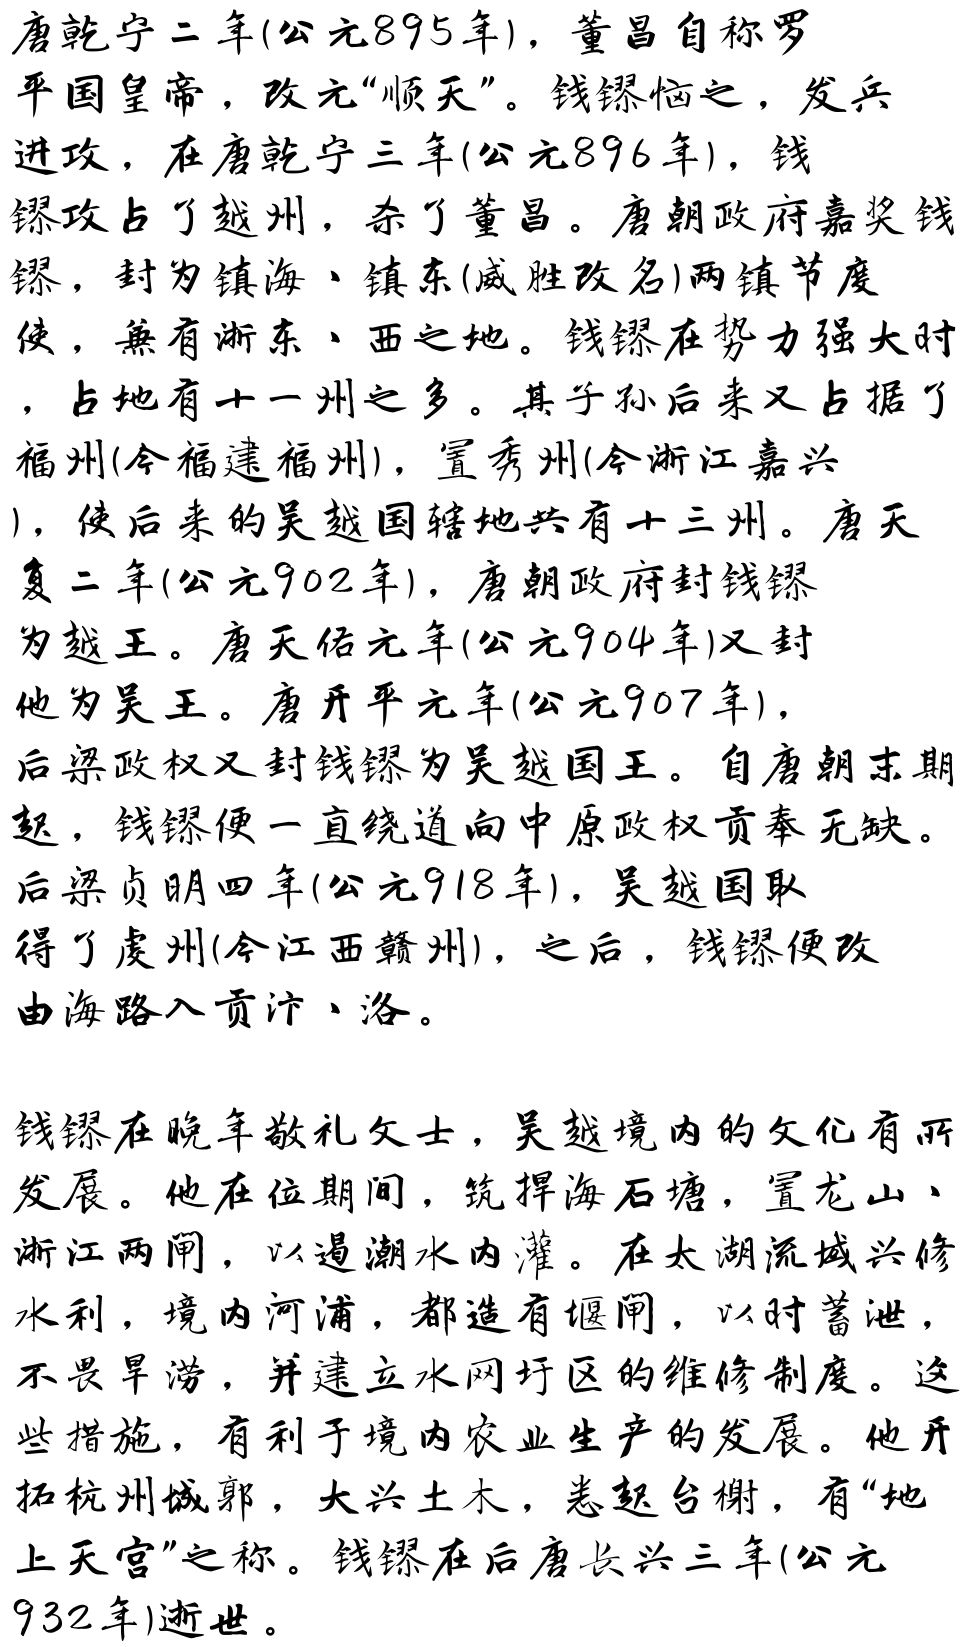 唐乾宁二年(公元895年)，董昌自称罗
平国皇帝，改元“顺天”。钱镠恼之，发兵
进攻，在唐乾宁三年(公元896年)，钱
镠攻占了越州，杀了董昌。唐朝政府嘉奖钱
镠，封为镇海、镇东(威胜改名)两镇节度
使，兼有浙东、西之地。钱镠在势力强大时
，占地有十一州之多。其子孙后来又占据了
福州(今福建福州)，置秀州(今浙江嘉兴
)，使后来的吴越国辖地共有十三州。唐天
复二年(公元902年)，唐朝政府封钱镠
为越王。唐天佑元年(公元904年)又封
他为吴王。唐开平元年(公元907年)，
后梁政权又封钱镠为吴越国王。自唐朝末期
起，钱镠便一直绕道向中原政权贡奉无缺。
后梁贞明四年(公元918年)，吴越国取
得了虔州(今江西赣州)，之后，钱镠便改
由海路入贡汴、洛。
钱镠在晚年敬礼文士，吴越境内的文化有所
发展。他在位期间，筑捍海石塘，置龙山、
浙江两闸，以遏潮水内灌。在太湖流域兴修
水利，境内河浦，都造有堰闸，以时蓄泄，
不畏旱涝，并建立水网圩区的维修制度。这
些措施，有利于境内农业生产的发展。他开
拓杭州城郭，大兴土木，悉起台榭，有“地
上天宫”之称。钱镠在后唐长兴三年(公元
932年)逝世。